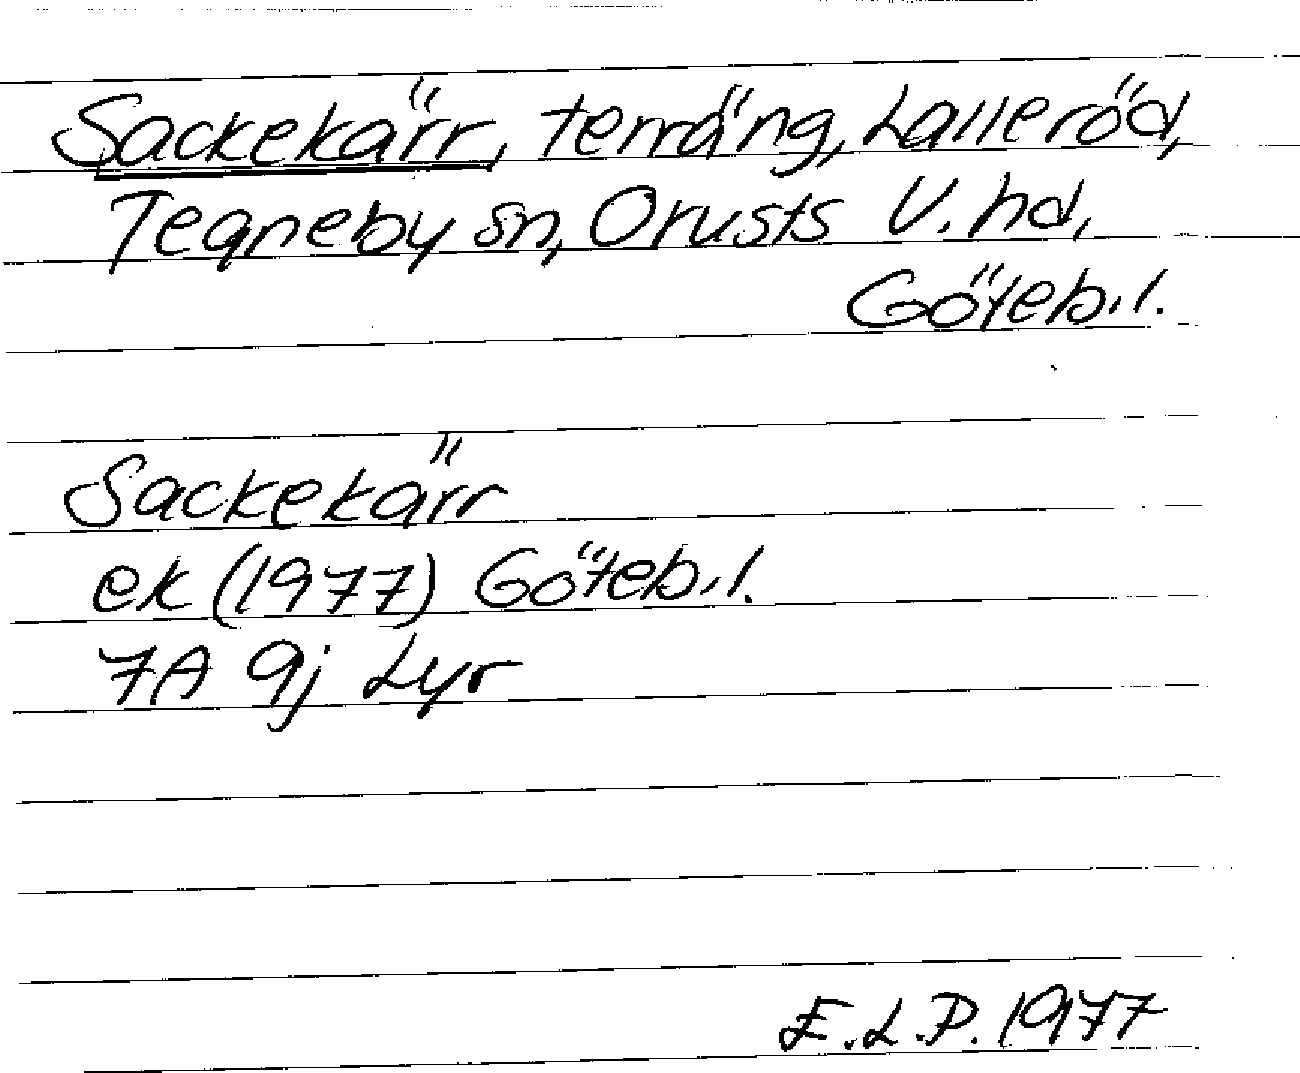 Sackekärr, terräng, Lalleröd,
Tegneby sn, Orusts V. hd,
Göteb. l.
Sackekärr
ek (1977) Göteb. l.
7A 9j Lyr
E.L.P. 1977